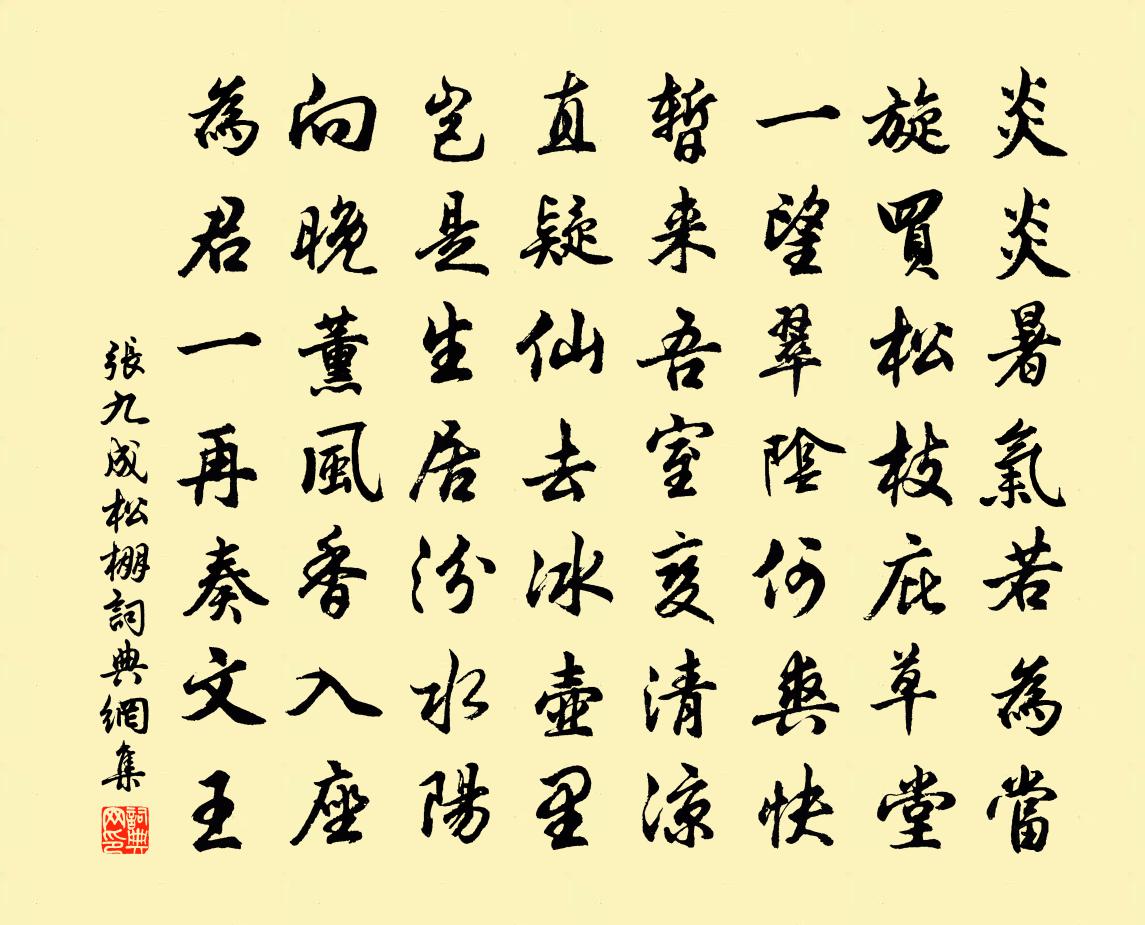 炎炎暑氣若為當
旋買松枝庇草堂
一望翠陰何爽快
暫来吾室变清凉
直疑仙去冰壺里
岂是生居汾水陽
向晚薰風香入座
為君一再奏文王
張九成松棚詞典網集
詞典网印